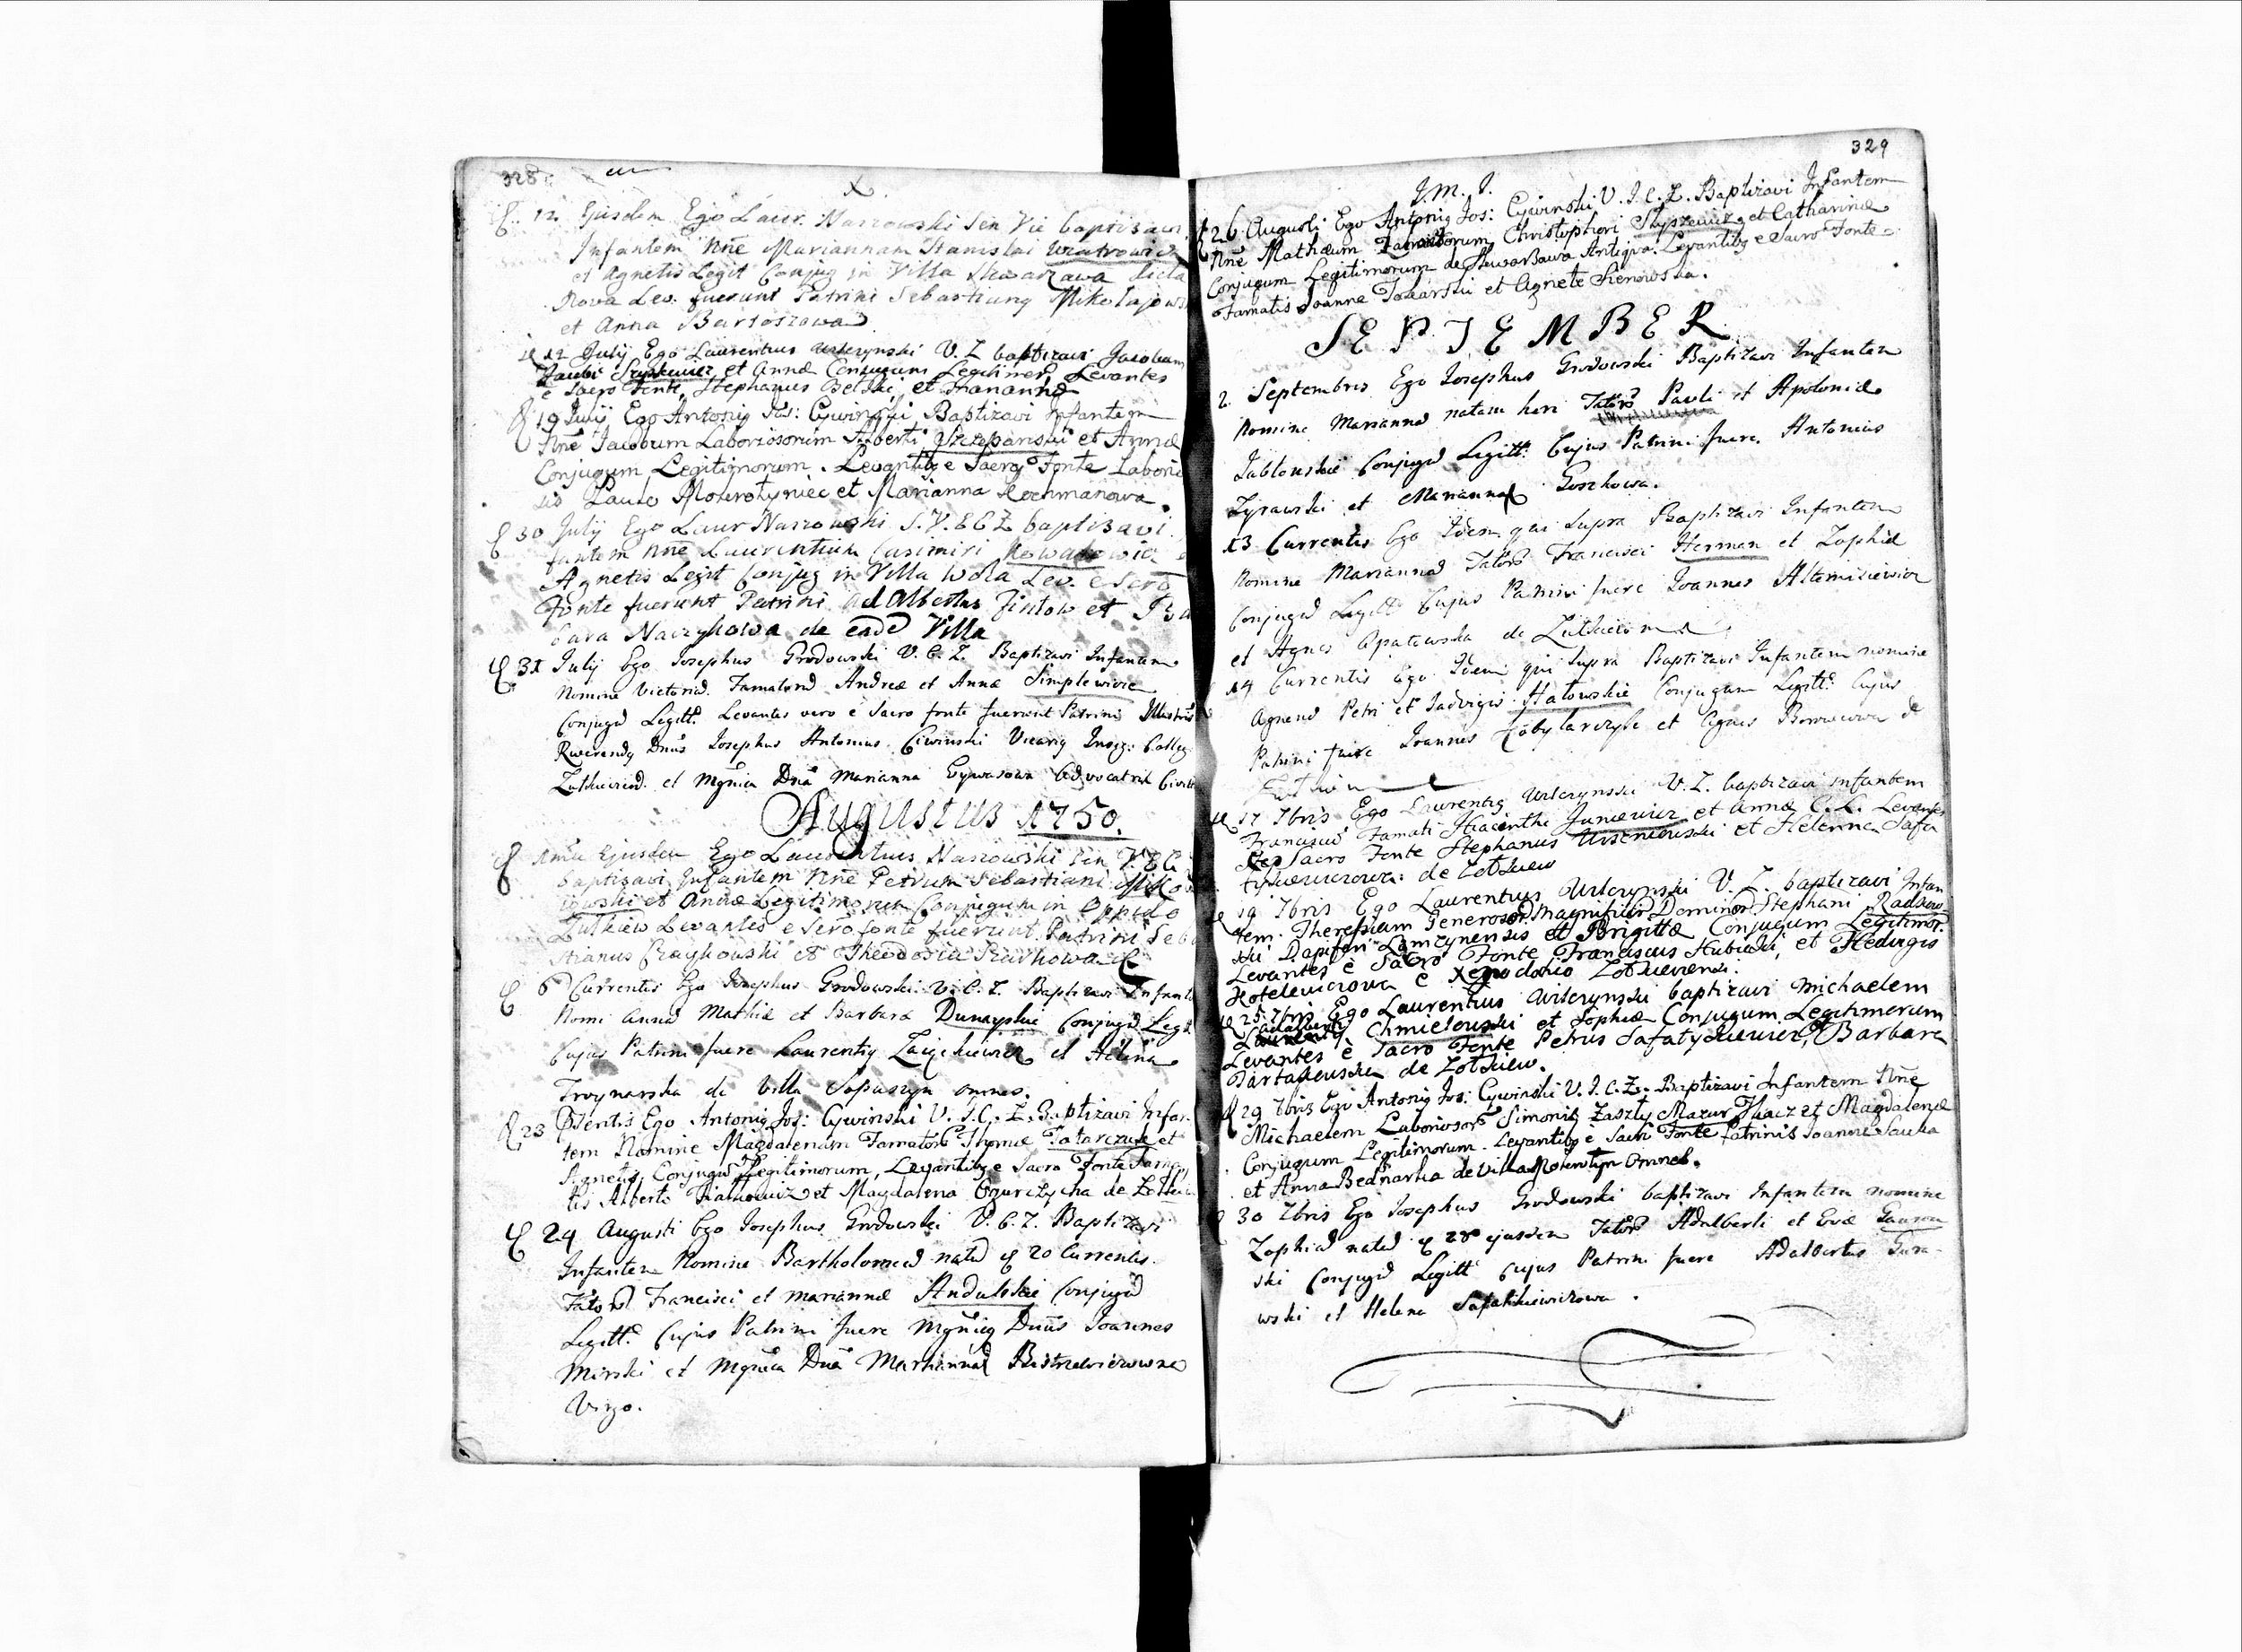 328
12 Ejusdem Ego Laur. Narzowski Sen Vic baptizavi
Infantem Nñe Mariannam Stanislai
et Agnetis Legit Conjug in Villa Skwarzawa dicta
Nova Lev. fuerunt Patrini Sebastiang Mikolajows
et Anna Bartoszowa
12 July Ego Laurentius V. Z baptizavi Jacobum
Jacobi et Annæ Conjugum Legitimor Levantes
e Sacro Fonte, Stephanus Belski, et
19 July Ego Antonig Jos: Cywinski Baptizavi Infantem
Nñe Jacobum Laboriosorum Alberti Szczepanski et Annæ
Conjugum Legitimorum. Levantibg e Sacro Fonte Laborio
sis Paulo et Marianna Kochmanowa.
30 July Ego Laur Narzowski S. V. E C Z baptizavi
fantem Nñe Laurentium Casimiri Kowalowicz
Agnetis Legit Conjug in Villa Wola Lev. e Sero
Fonte fuerunt Patrini Adalbertus Jintow et Bar
bara Naczykowa de eade Villa
31 July Ego Josephus Grodowski V. C. Z. Baptizavi Infantem
Nomine Victoria. Famator Andreæ et Annæ Simplewicze
Conjugu Legitt. Levantes vero e Sacro fonte fuerunt Patrini Illustris
Reverendg Dnus Josephus Antonius Ciwinski Vicarig Insig: Colleg
et Mgnica Dna Marianna Advocatrix
Augustus 1750.
Ejusdem Ego Laurentius Narzowski Sen V. E C
baptizavi Infantem Nñe Petrum Sebastiani Miko
et Annæ Legitimorum Conjugum in Oppido
Zulkiew Levantes e Sero fonte fuerunt Patrini Seb
stianus et Theodosia
6 Currentis Ego Josephus Grodowski V. C. Z. Baptizavi Infante
Nomi Anna Mathiæ et Barbaræ Dunayskie Conjugu Legit
Cujus Patrini fuere Laurentig et Helena
Troynarska de Villa Sopuszyn omnes.
23 Psentis Ego Antonig Jos: Cywinski V. I. C. Z. Baptizavi Infan
tem Nomine Magdalenam Famator Thomæ Tatarczuk et
Agnetis Conjugum Legitimorum, Levantibg e Sacro Fonte Fama
tis Alberto et Magdalena Ogurczycha de
24 Augusti Ego Josephus Grodowski V. C. Z. Baptizavi
Infantem Nomine Bartholomeu natu 20 Currentis.
Fator Francisci et Mariannæ Andulskie Conjugu
Legitt. Cujus Patrini fuere Mgnicg Dnus Joannes
Mirski et Mgnica Dna Marianna
Virgo.
329
J. M. J.
26 Augusti Ego Antonig Jos: Cywinski V. I. C. Z. Baptizavi Infantem
Nñe Mathæum Famatorum Christophori et Catharinæ
Conjugum Legitimorum de Antiqva. Levantibg e Sacro Fonte
Famatis Joanne Tokarski et Agnete
SEPTEMBER
2 Septembris Ego Josephus Grodowski Baptizavi Infantem
Nomine Marianna natam heri Fator Pauli et Apoloniæ
Jablonskie Conjugu Legitt. Cujus Patrini fuere. Antonius
Zyrawski et Marianna Goszkowa.
13 Currentis Ego Idem qui Supra Baptizavi Infantem
Nomine Marianna Fator Francisci Herman et Zophiæ
Conjugu Legitt Cujus Patrini fuere Joannes
et Agnes Opatowska de
14 Currentis Ego Idem qui Supra Baptizavi Infantem nomine
Agnem Petri et Jadvigis Hatowskie Conjugum Legitt. Cujus
Patrini fuere Joannes Kobylarczyk et Agnes de
17 7bris Ego Laurentig V. Z. baptizavi infantem
Franciscu Famati Hiacinthi et Annæ C. L. Levantes
Sacro Fonte Stephanus et Helenna Safa
de Zolkiew
19 7bris Ego Laurentius V. Z. baptizavi Infan
tem Theresiam Generosor Magnificor Dominor Stephani Radzew
ski Dapiferi et Brigittæ Conjugum Legitimor.
Levantes è Sacro Fonte Franciscus Hubicki, et Hedvigis
Kotelewiczowa è Xenodochio
25 7bris Ego Laurentius baptizavi Michaelem
Chmielewski et Sophiæ Conjugum Legitimorum
Levantes è Sacro Fonte Petrus Safatykiewicz, Barbara
de Zolkiew.
29 7bris Ego Antonig Jos: Cywinski V. I. C. Z. Baptizavi Infantem Nñe
Michaelem Laboriosor Simonis Zaszly Mazur Tkacz et Magdalenæ
Conjugum Legitimorum. Levantibg è Sacri Fonte Patrinis Joanne Sauka
et Anna Bednarka de Villa omnes.
30 7bris Ego Josephus Grodowski baptizavi Infantem nomine
Zophia natu 28 ejusdem Fator Adalberti et Evæ
ski Conjugu Legitt Cujus Patrini fuere Adalbertus Gura-
wski et Helena Safatkiewiczowa.